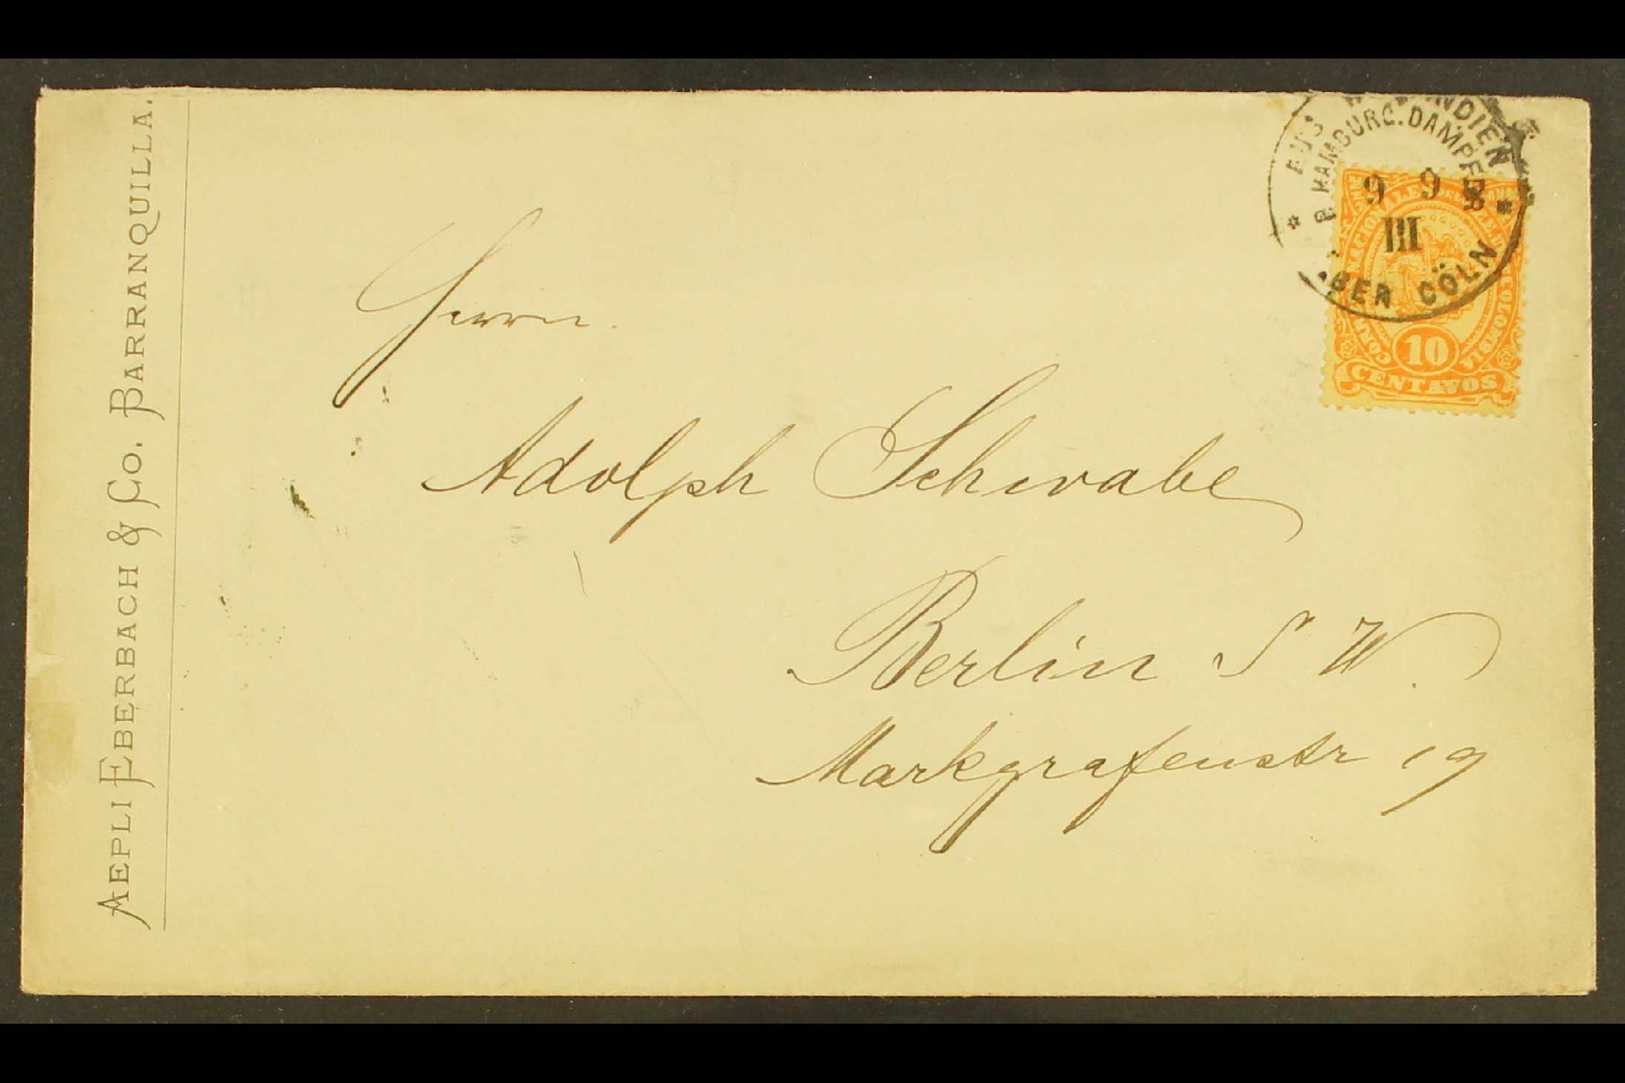 AEPLI EBERBACH & CO. BARRANQUILLA.
Herrn.
Adolph Schwabe
Berlin S W.
Markgrafenstr 19
AUS
HAMBURG. DAMPFER
9 9
III
CÖLN
10
CENTAVOS